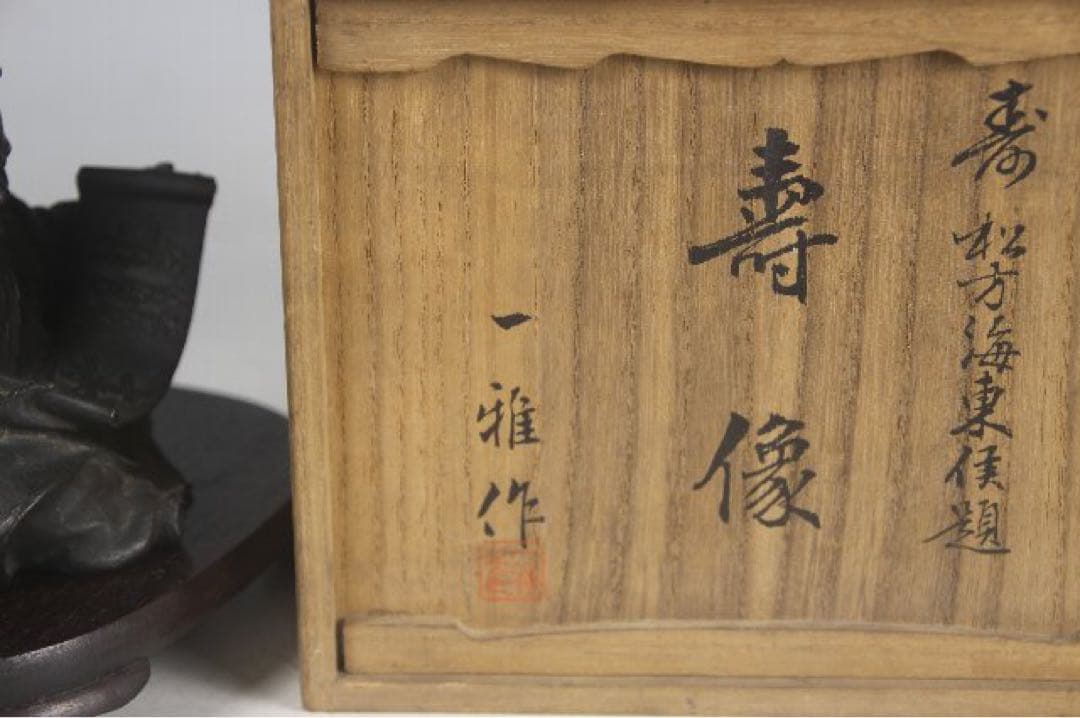 寿 松方海東侯題
壽像
一雅作